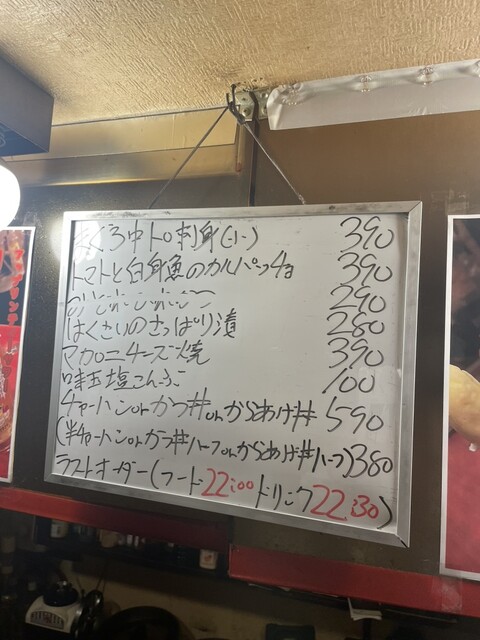 まぐろ中トロ刺身(小) 390
トマトと白身魚のカルパッチョ 390
290
はくさいのさっぱり漬 280
マカロニチーズ焼 390
味玉塩こんぶ 100
チャーハンorかつ丼orからあげ丼 590
(半チャーハンorかつ丼ハーフorからあげ丼ハーフ)380
ラストオーダー(フード22:00ドリンク22:30)